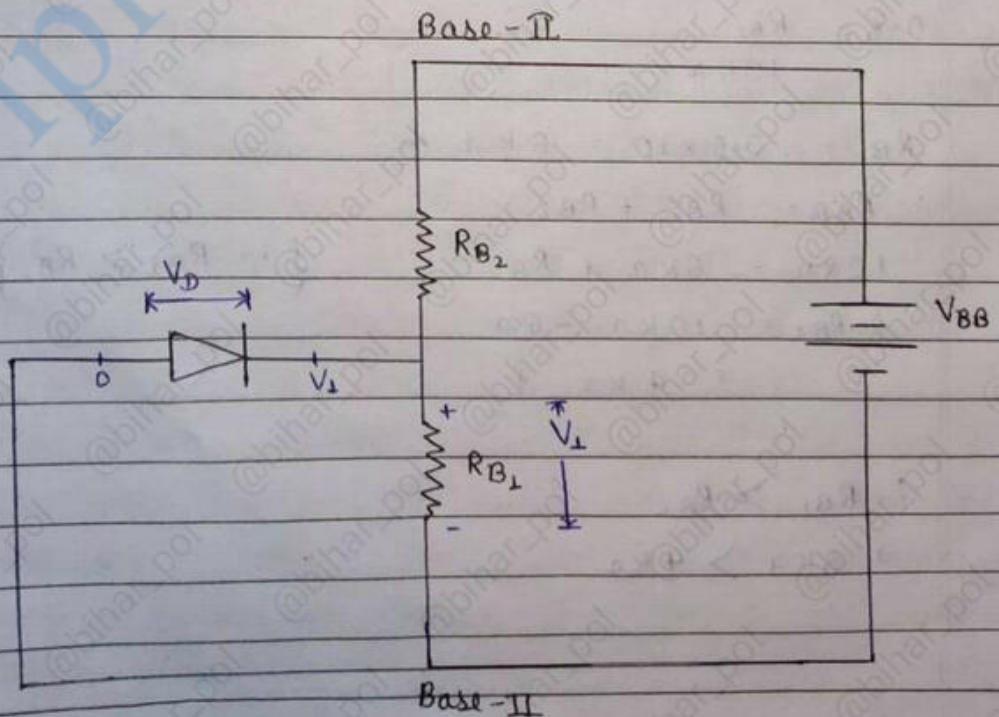 Base-II
R_B₂
V_D
V_BB
0
V₁
+
V₁
R_B₁
-
Base-II
@bihar_pol